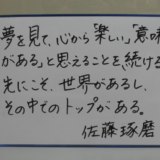 夢を見て、心から「楽しい」「意味
がある」と思えることを、続ける
先にこそ、世界があるし、
その中でのトップがある。
佐藤琢磨